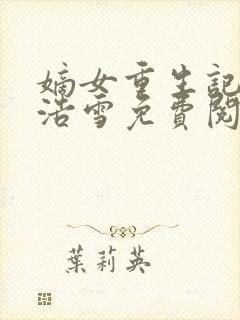 嫡女重生記
浩雪免費閱
葉莉英